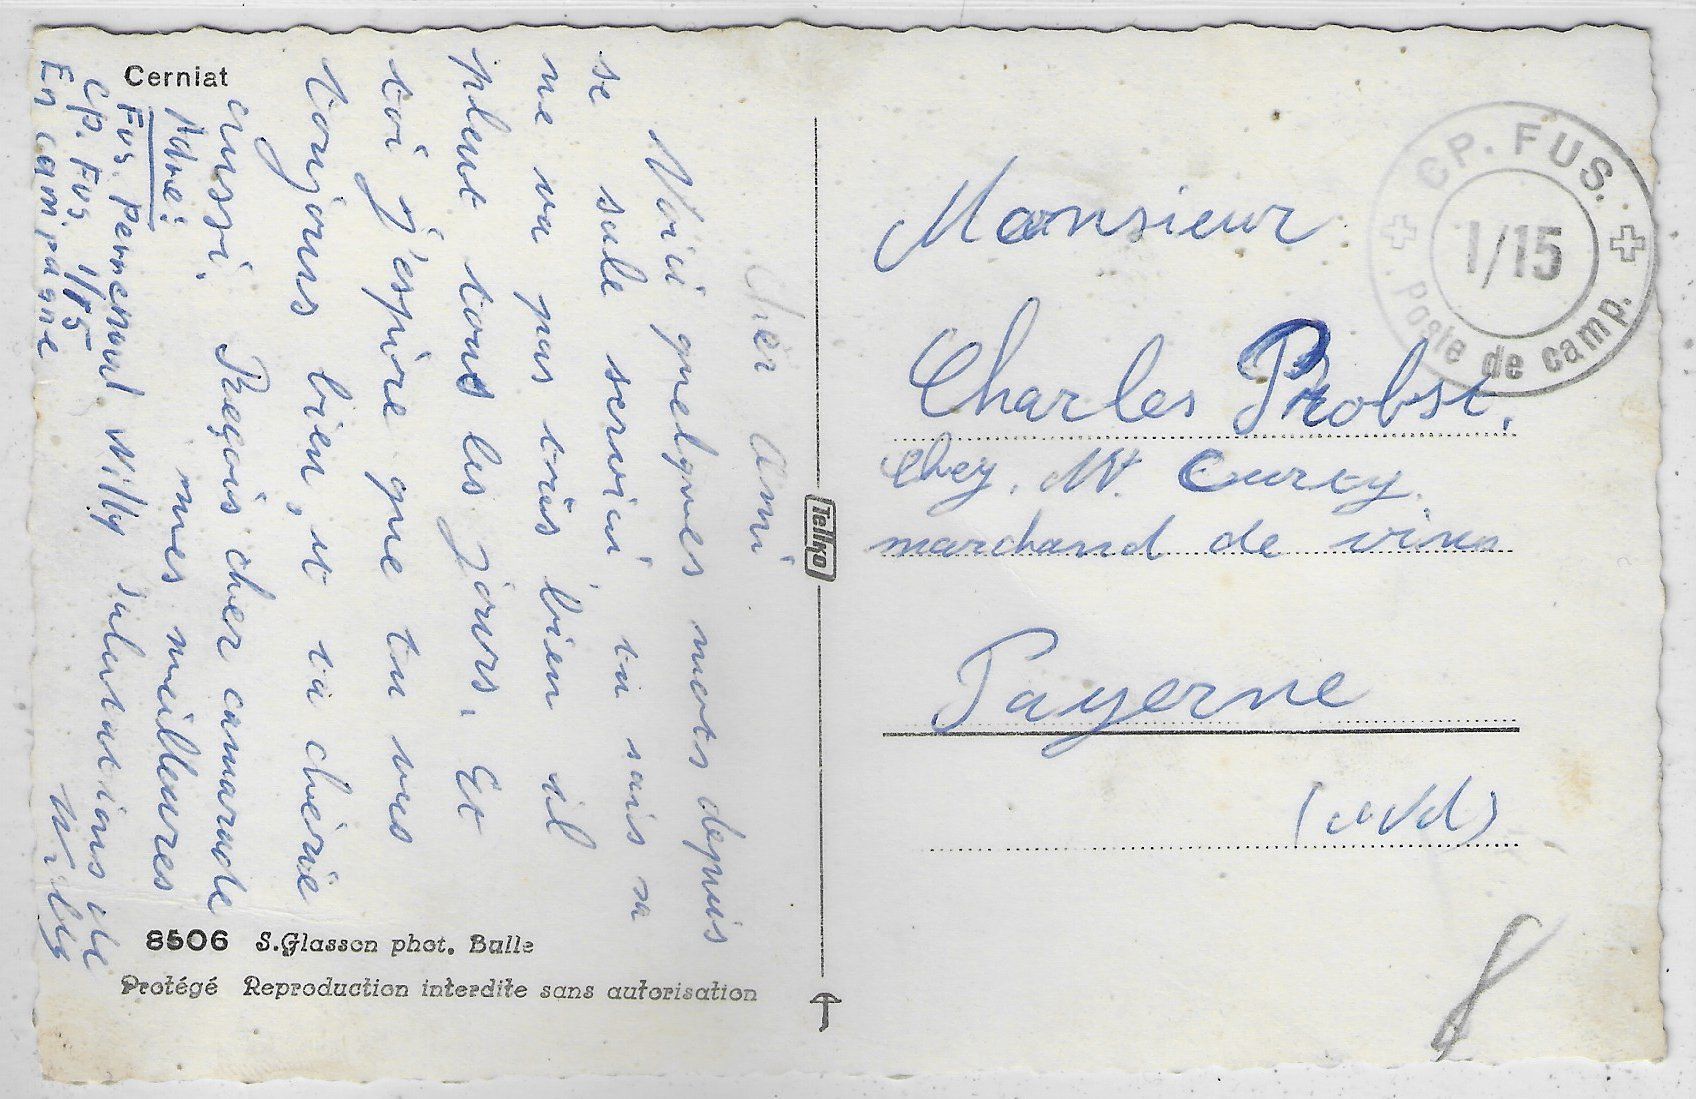 Cerniat
Cher ami
Voici quelques mots depuis
se sale servici tu sais sa
ne va pas très bien il
pleut tous les jours. Et
toi j'espère que tu vas
toujours bien, et ta chérie
aussi. Reçois cher camarade
mes meilleures
salutations de
Willy
Adre:
Fus. Perrenoud Willy
Cp. Fus. 1/15
En campagne
8506 S.Glasson phot. Bulle
Protégé Reproduction interdite sans autorisation
Tellko
CP. FUS.
1/15
Poste de camp.
Monsieur
Charles Probst.
Chez. Mr.
marchand de vins
Payerne
(Vd)